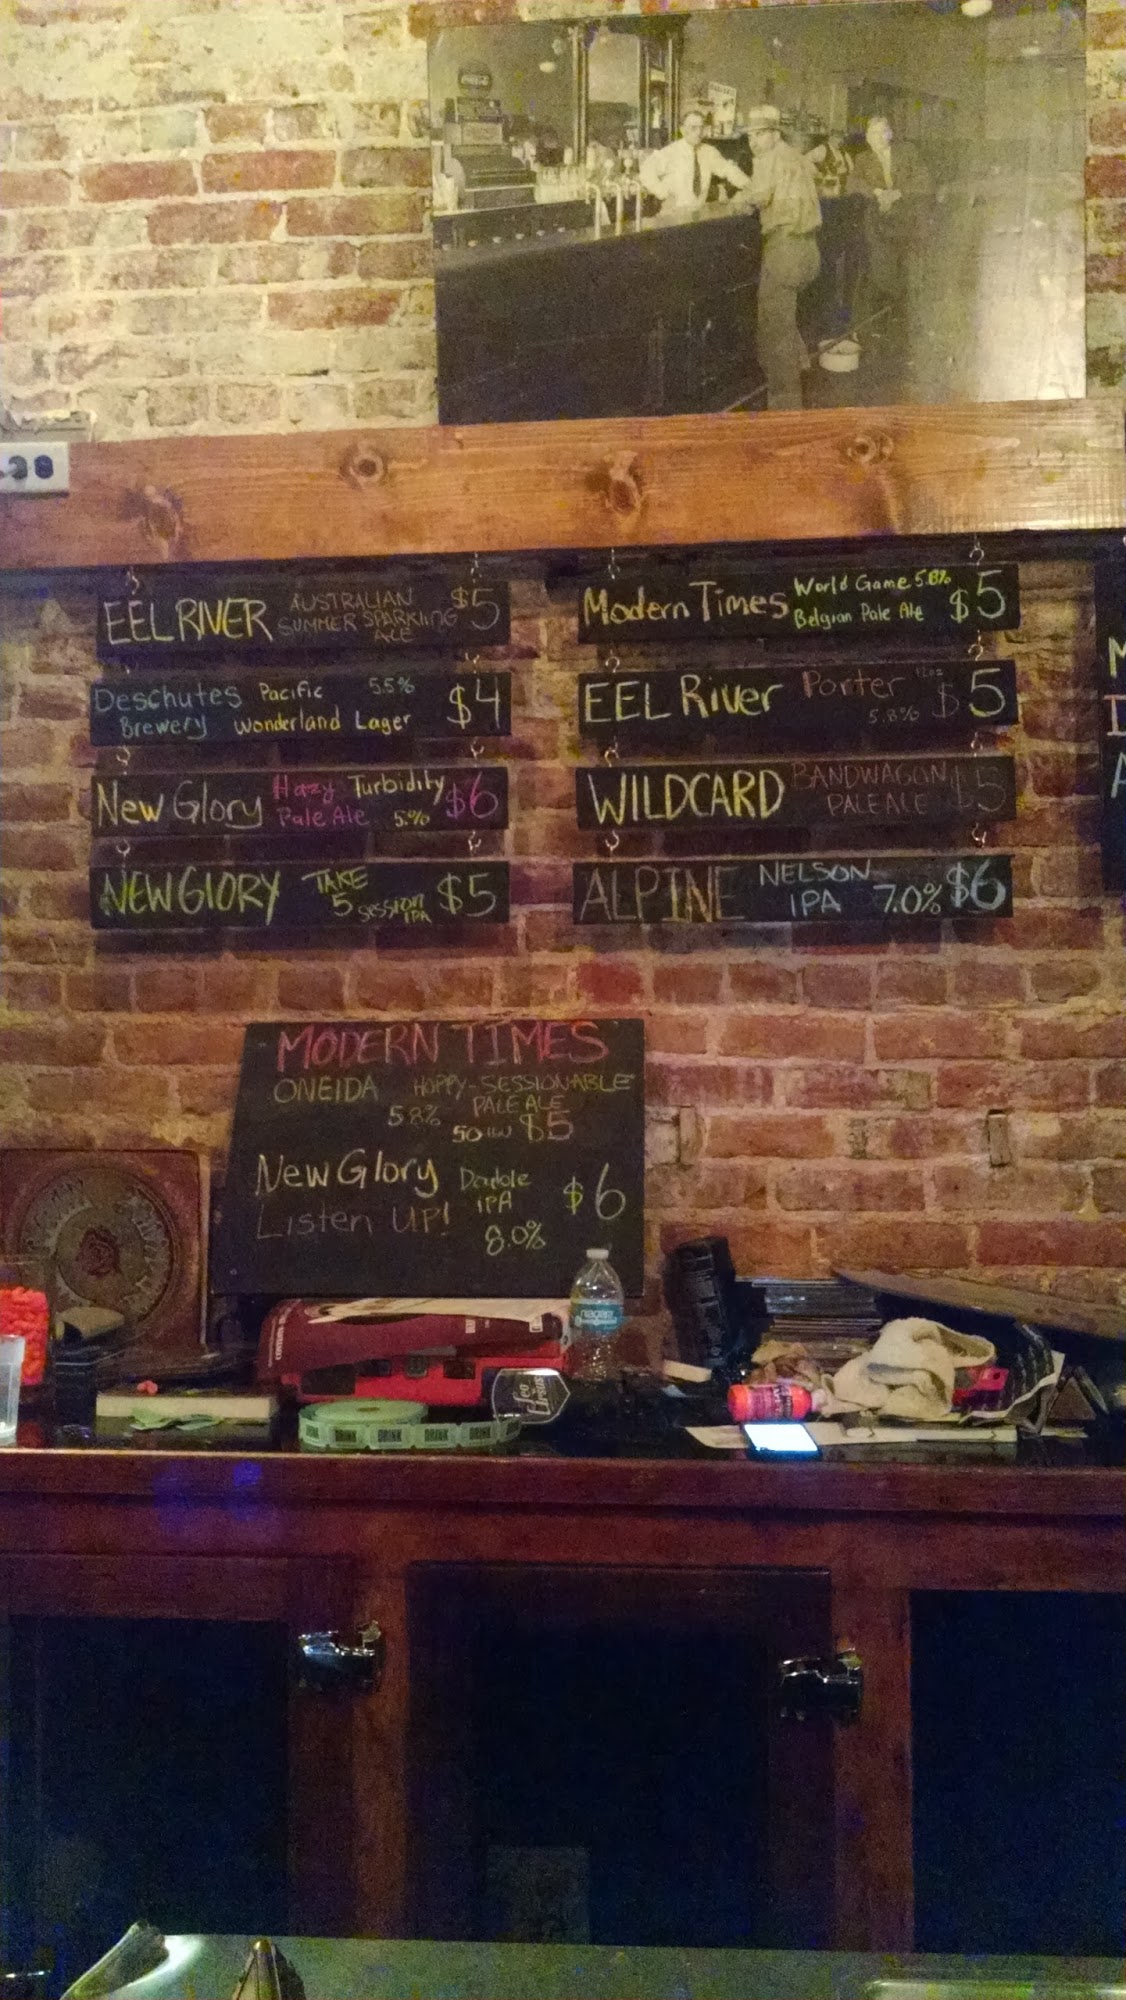 EEL RIVER AUSTRALIAN $5
SUMMER SPARKLING
ALE
Deschutes Pacific 5.5% $4
Brewery Wonderland Lager
New Glory Hazy Turbidity $6
Pale Ale 5.%
NEW GLORY TAKE $5
5 SESSION
IPA
Modern Times World Game 5.8% $5
Belgian Pale Ale
EEL River Porter 12oz $5
5.8%
WILDCARD BANDWAGON $5
PALE ALE
ALPINE NELSON $6
IPA 7.0%
MODERN TIMES
ONEIDA HOPPY-SESSIONABLE
PALE ALE
5.8% 50 $5
New Glory Double $6
IPA
Listen UP! 8.0%
DRINK DRINK DRINK